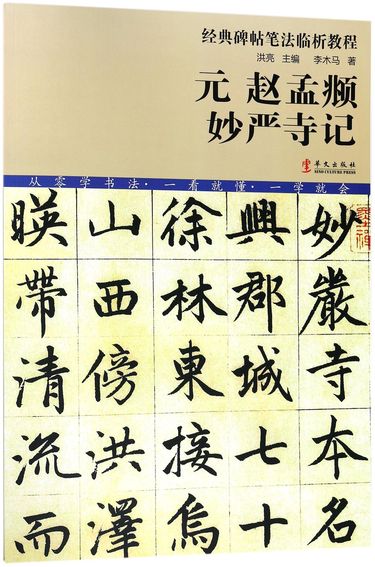 经典碑帖笔法临析教程
洪亮 主编 李木马 著
元 赵孟𫖯
妙严寺记
華文出版社
SINO-CULTURE PRESS
从零学书法·一看就懂·一学就会
妙嚴寺本名
興郡城七十
徐林東接烏
山西傍洪澤
暎帶清流而